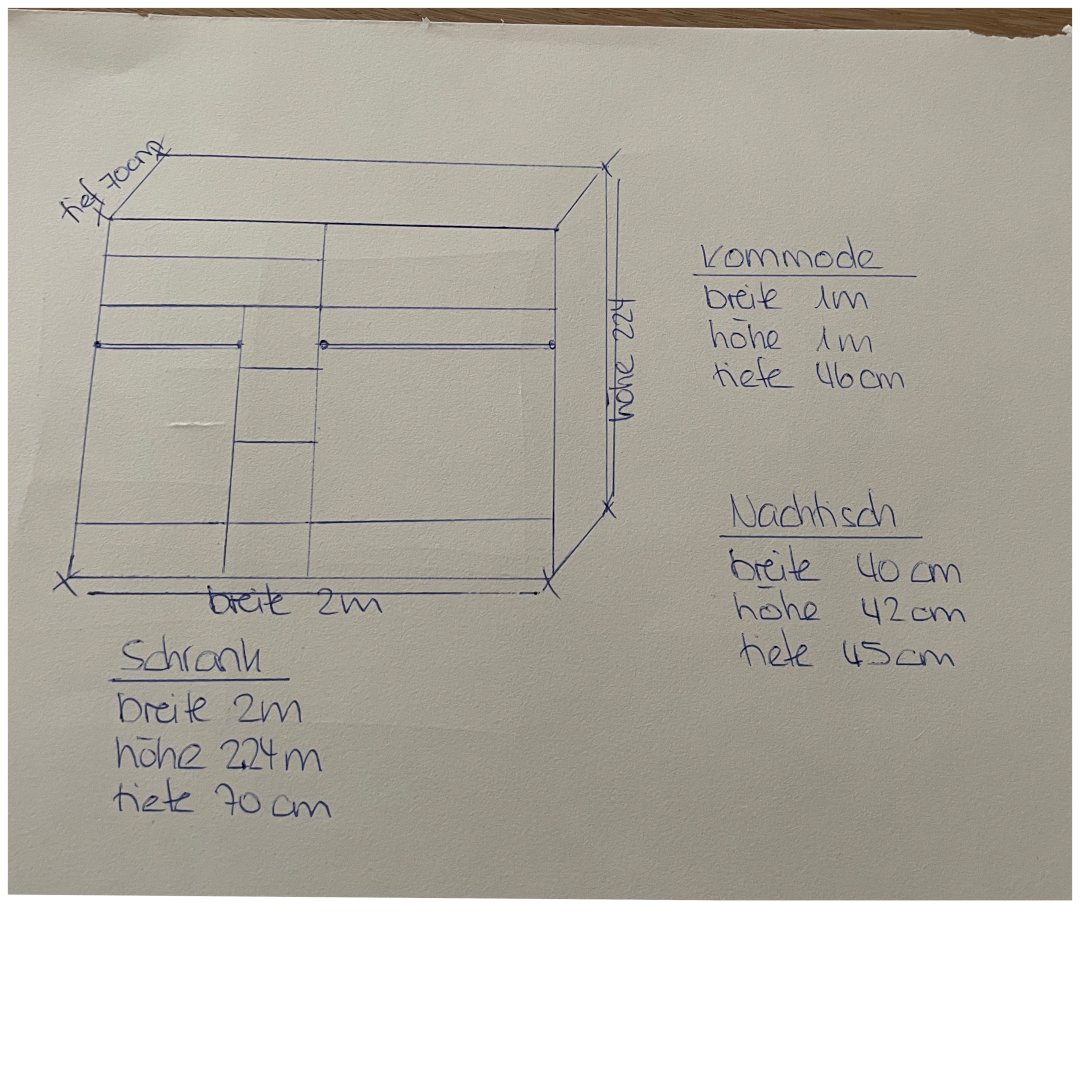 tief 70cm
höhe 224
breite 2m
Schrank
breite 2m
höhe 2.24m
tiefe 70 cm
Kommode
breite 1m
höhe 1m
tiefe 46cm
Nachtisch
breite 40 cm
höhe 42cm
tiefe 45cm